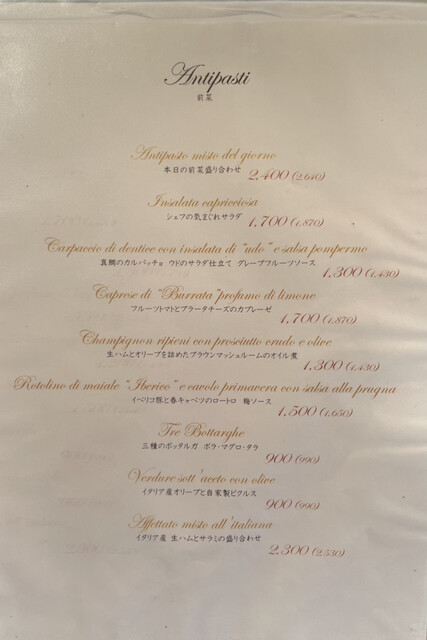 Antipasti
前菜
Antipasto misto del giorno
本日の前菜盛り合わせ 2,400 (2,640)
Insalata capricciosa
シェフの気まぐれサラダ 1,700 (1,870)
Carpaccio di dentice con insalata di "udo" e salsa pompermo
真鯛のカルパッチョ ウドのサラダ仕立て グレープフルーツソース
1,300 (1,430)
Caprese di "Burrata" profumo di limone
フルーツトマトとブラータチーズのカプレーゼ
1,700 (1,870)
Champignon ripieni con prosciutto crudo e olive
生ハムとオリーブを詰めたブラウンマッシュルームのオイル煮
1,300 (1,430)
Rotolino di maiale "Iberico" e cavolo primavera con salsa alla prugna
イベリコ豚と春キャベツのロートロ 梅ソース
1,500 (1,650)
Tre Bottarghe
三種のボッタルガ ボラ・マグロ・タラ
900 (990)
Verdure sott'aceto con olive
イタリア産オリーブと自家製ピクルス
900 (990)
Affettato misto all'italiana
イタリア産 生ハムとサラミの盛り合わせ
2,300 (2,530)